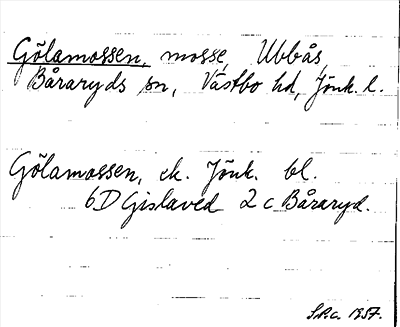 Gölamossen, mosse, Ubbås,
Båraryds sn, Västbo hd, Jönk. l.
Gölamossen, ek. Jönk. bl.
6D Gislaved 2 c Båraryd.
1957.